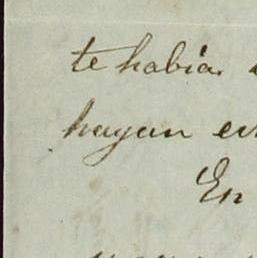 te habia
hayan en
En